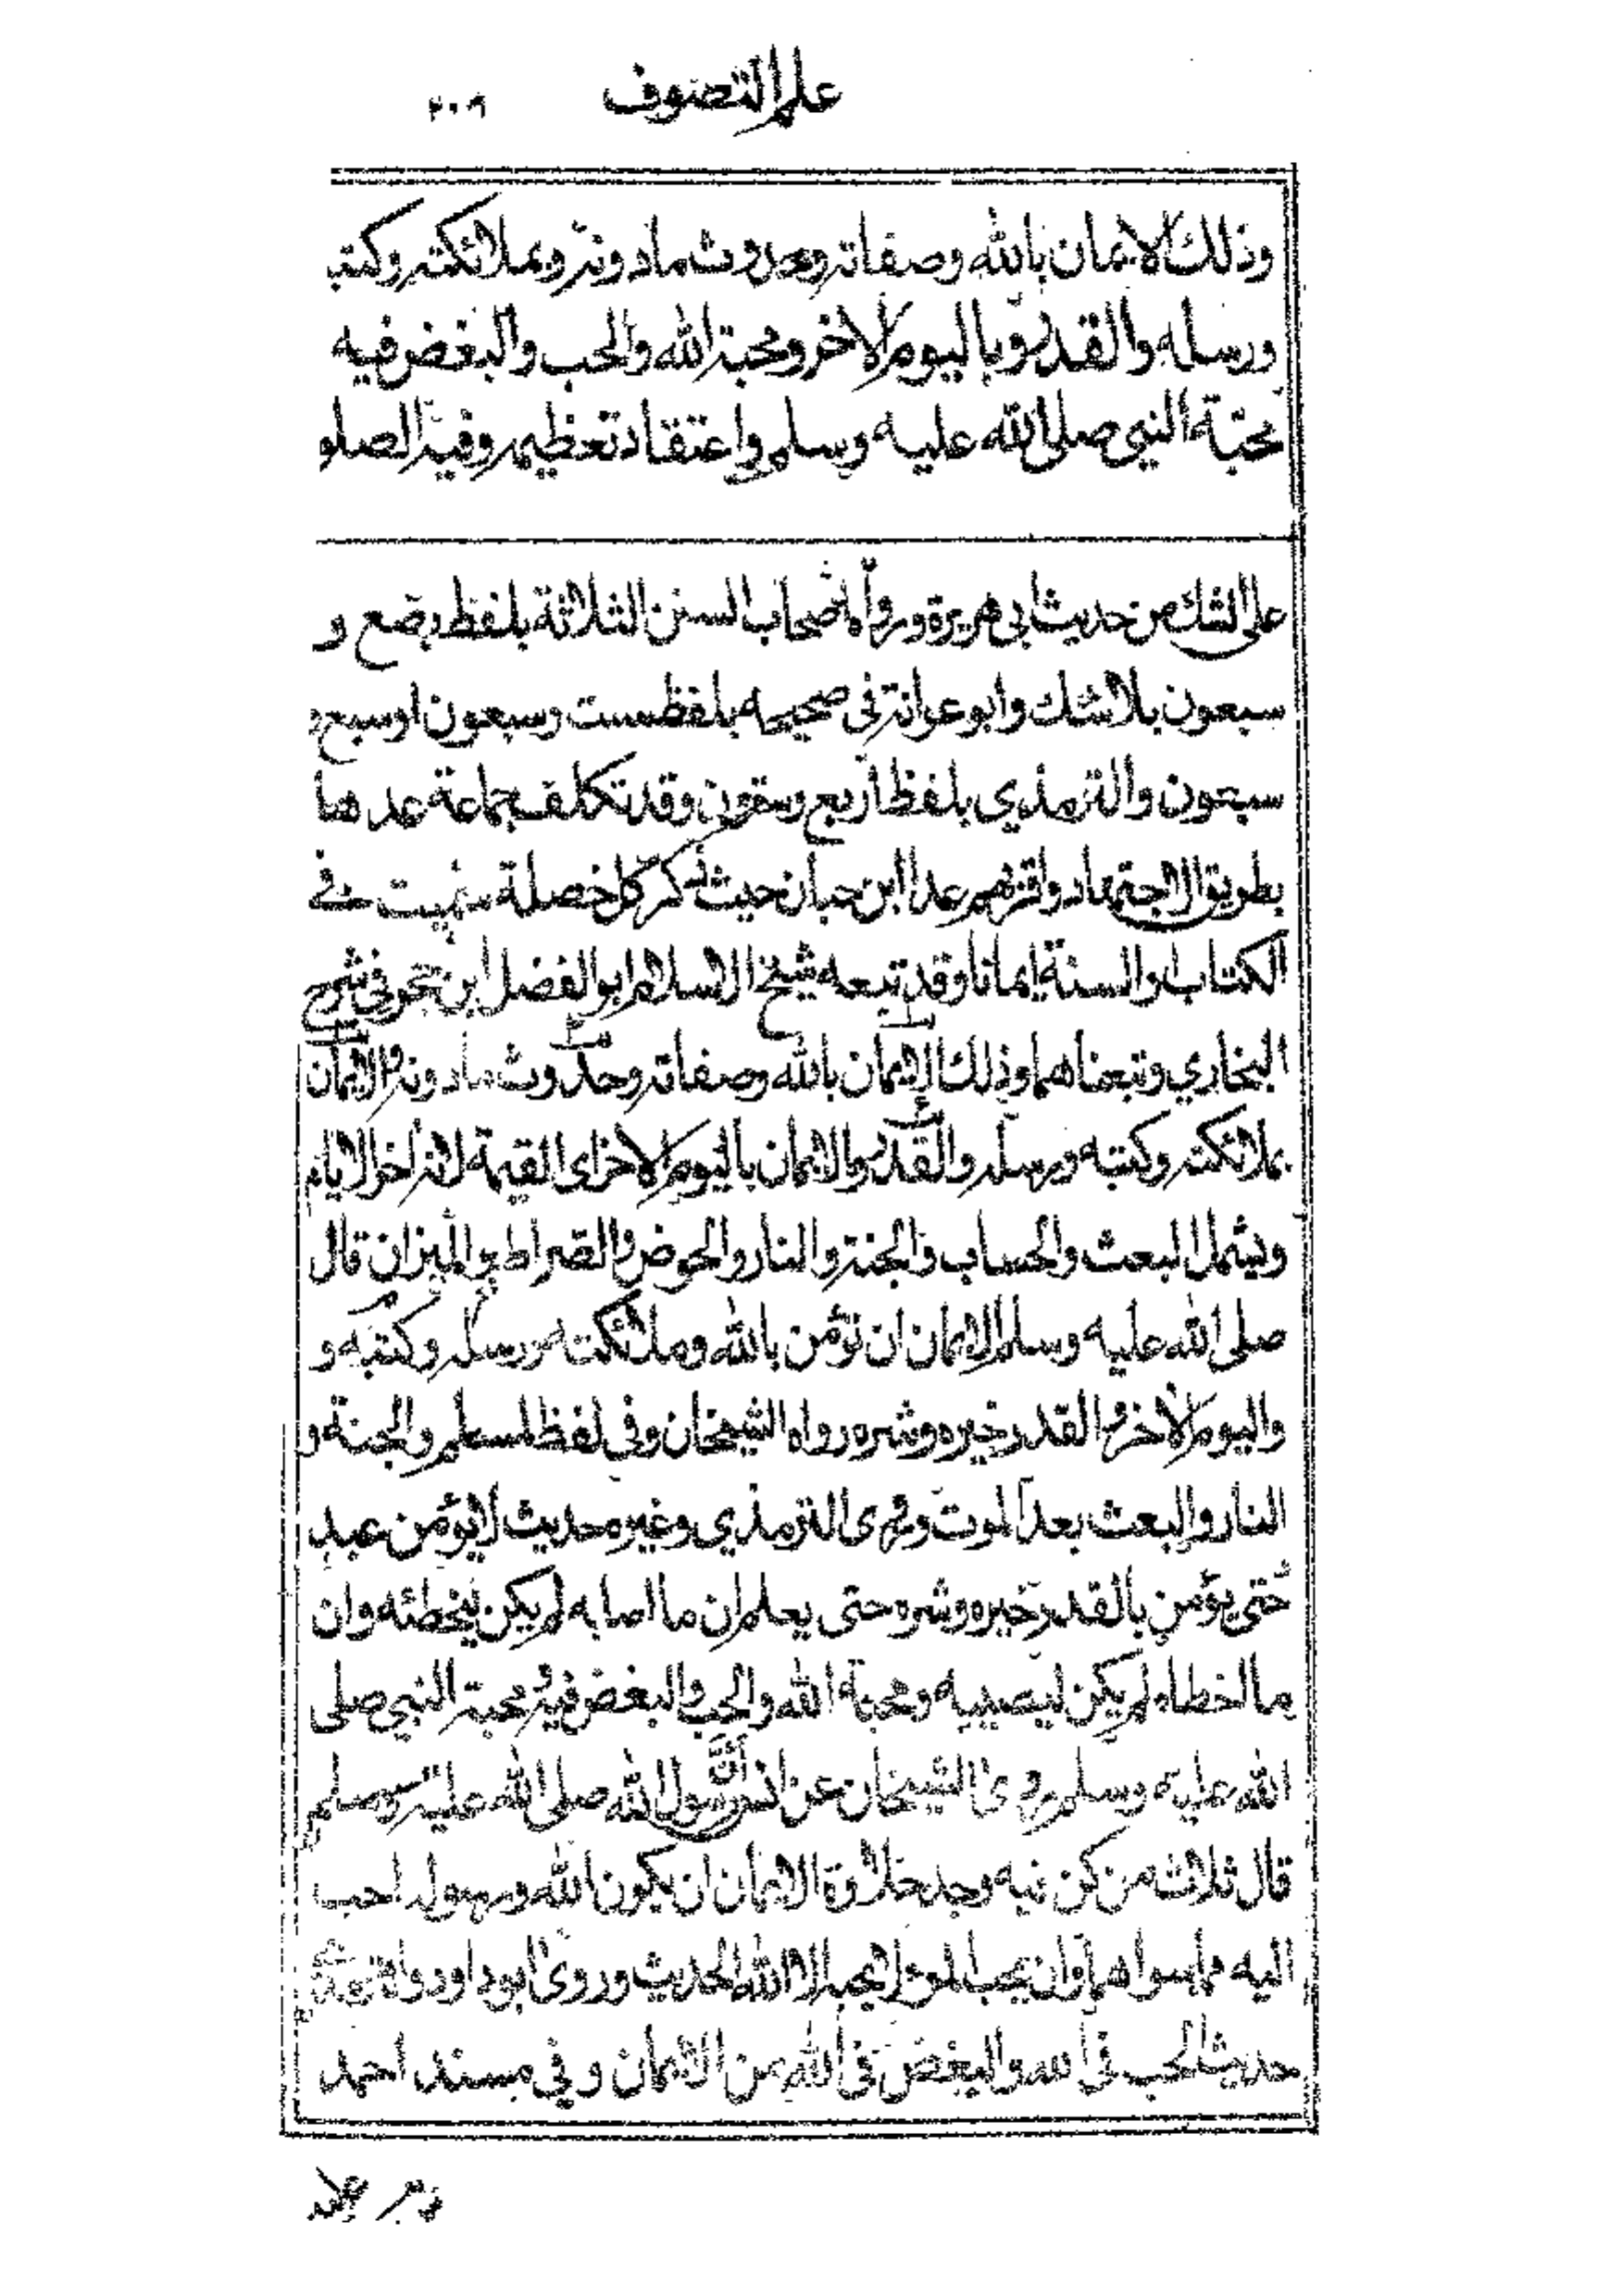 علم التصوف ٢٠٩
وذلك الايمان بالله وصفاته وحدوث مادونه وبملائكته وكتبه
ورسله والقدر وباليوم الاخر ومحبة الله والحب والبغض فيه
محبة النبي صلى الله عليه وسلم واعتقاد تعظيمه وفيه الصلو
على الشك من حديث ابي هريرة ورواه اصحاب السنن الثلاثة بلفظ بضع و
سبعون بلا شك وابو عوانة في صحيحه بلفظ ست وسبعون او سبع و
سبعون والترمذي بلفظ اربع وستون وقد تكلف جماعة عدها
بطريق الاجتهاد واقربهم عدا ابن حبان حيث ذكر كل خصلة سميت في
الكتاب والسنة ايمانا وقد تبعه شيخ الاسلام ابو الفضل ابن حجر في شرح
البخاري وتبعناهما وذلك الايمان بالله وصفاته وحدوث مادونه والايمان
بملائكته وكتبه ورسله والقدر والايمان باليوم الاخر اى القيمة لانه اخر الايام
ويشمل البعث والحساب والجنة والنار والحوض والصراط والميزان قال
صلى الله عليه وسلم الايمان ان تؤمن بالله وملائكته ورسله وكتبه و
واليوم الاخر والقدر خيره وشره رواه الشيخان وفي لفظ لمسلم والجنة و
النار والبعث بعد الموت وروى الترمذي وغيره حديث لا يؤمن عبد
حتى يؤمن بالقدر خيره وشره حتى يعلم ان ما اصابه لم يكن ليخطئه وان
ما اخطاه لم يكن ليصيبه ومحبة الله والحب والبغض فيه ومحبة النبي صلى
الله عليه وسلم روى الشيخان عن انس ان رسول الله صلى الله عليه وسلم
قال ثلاث من كن فيه وجد حلاوة الايمان ان يكون الله ورسوله احب
اليه مما سواهما وان يحب المرء لا يحبه الا الله الحديث وروى ابو داود والترمذي
حديث الحب في الله والبغض في الله من الايمان وفي مسند احمد